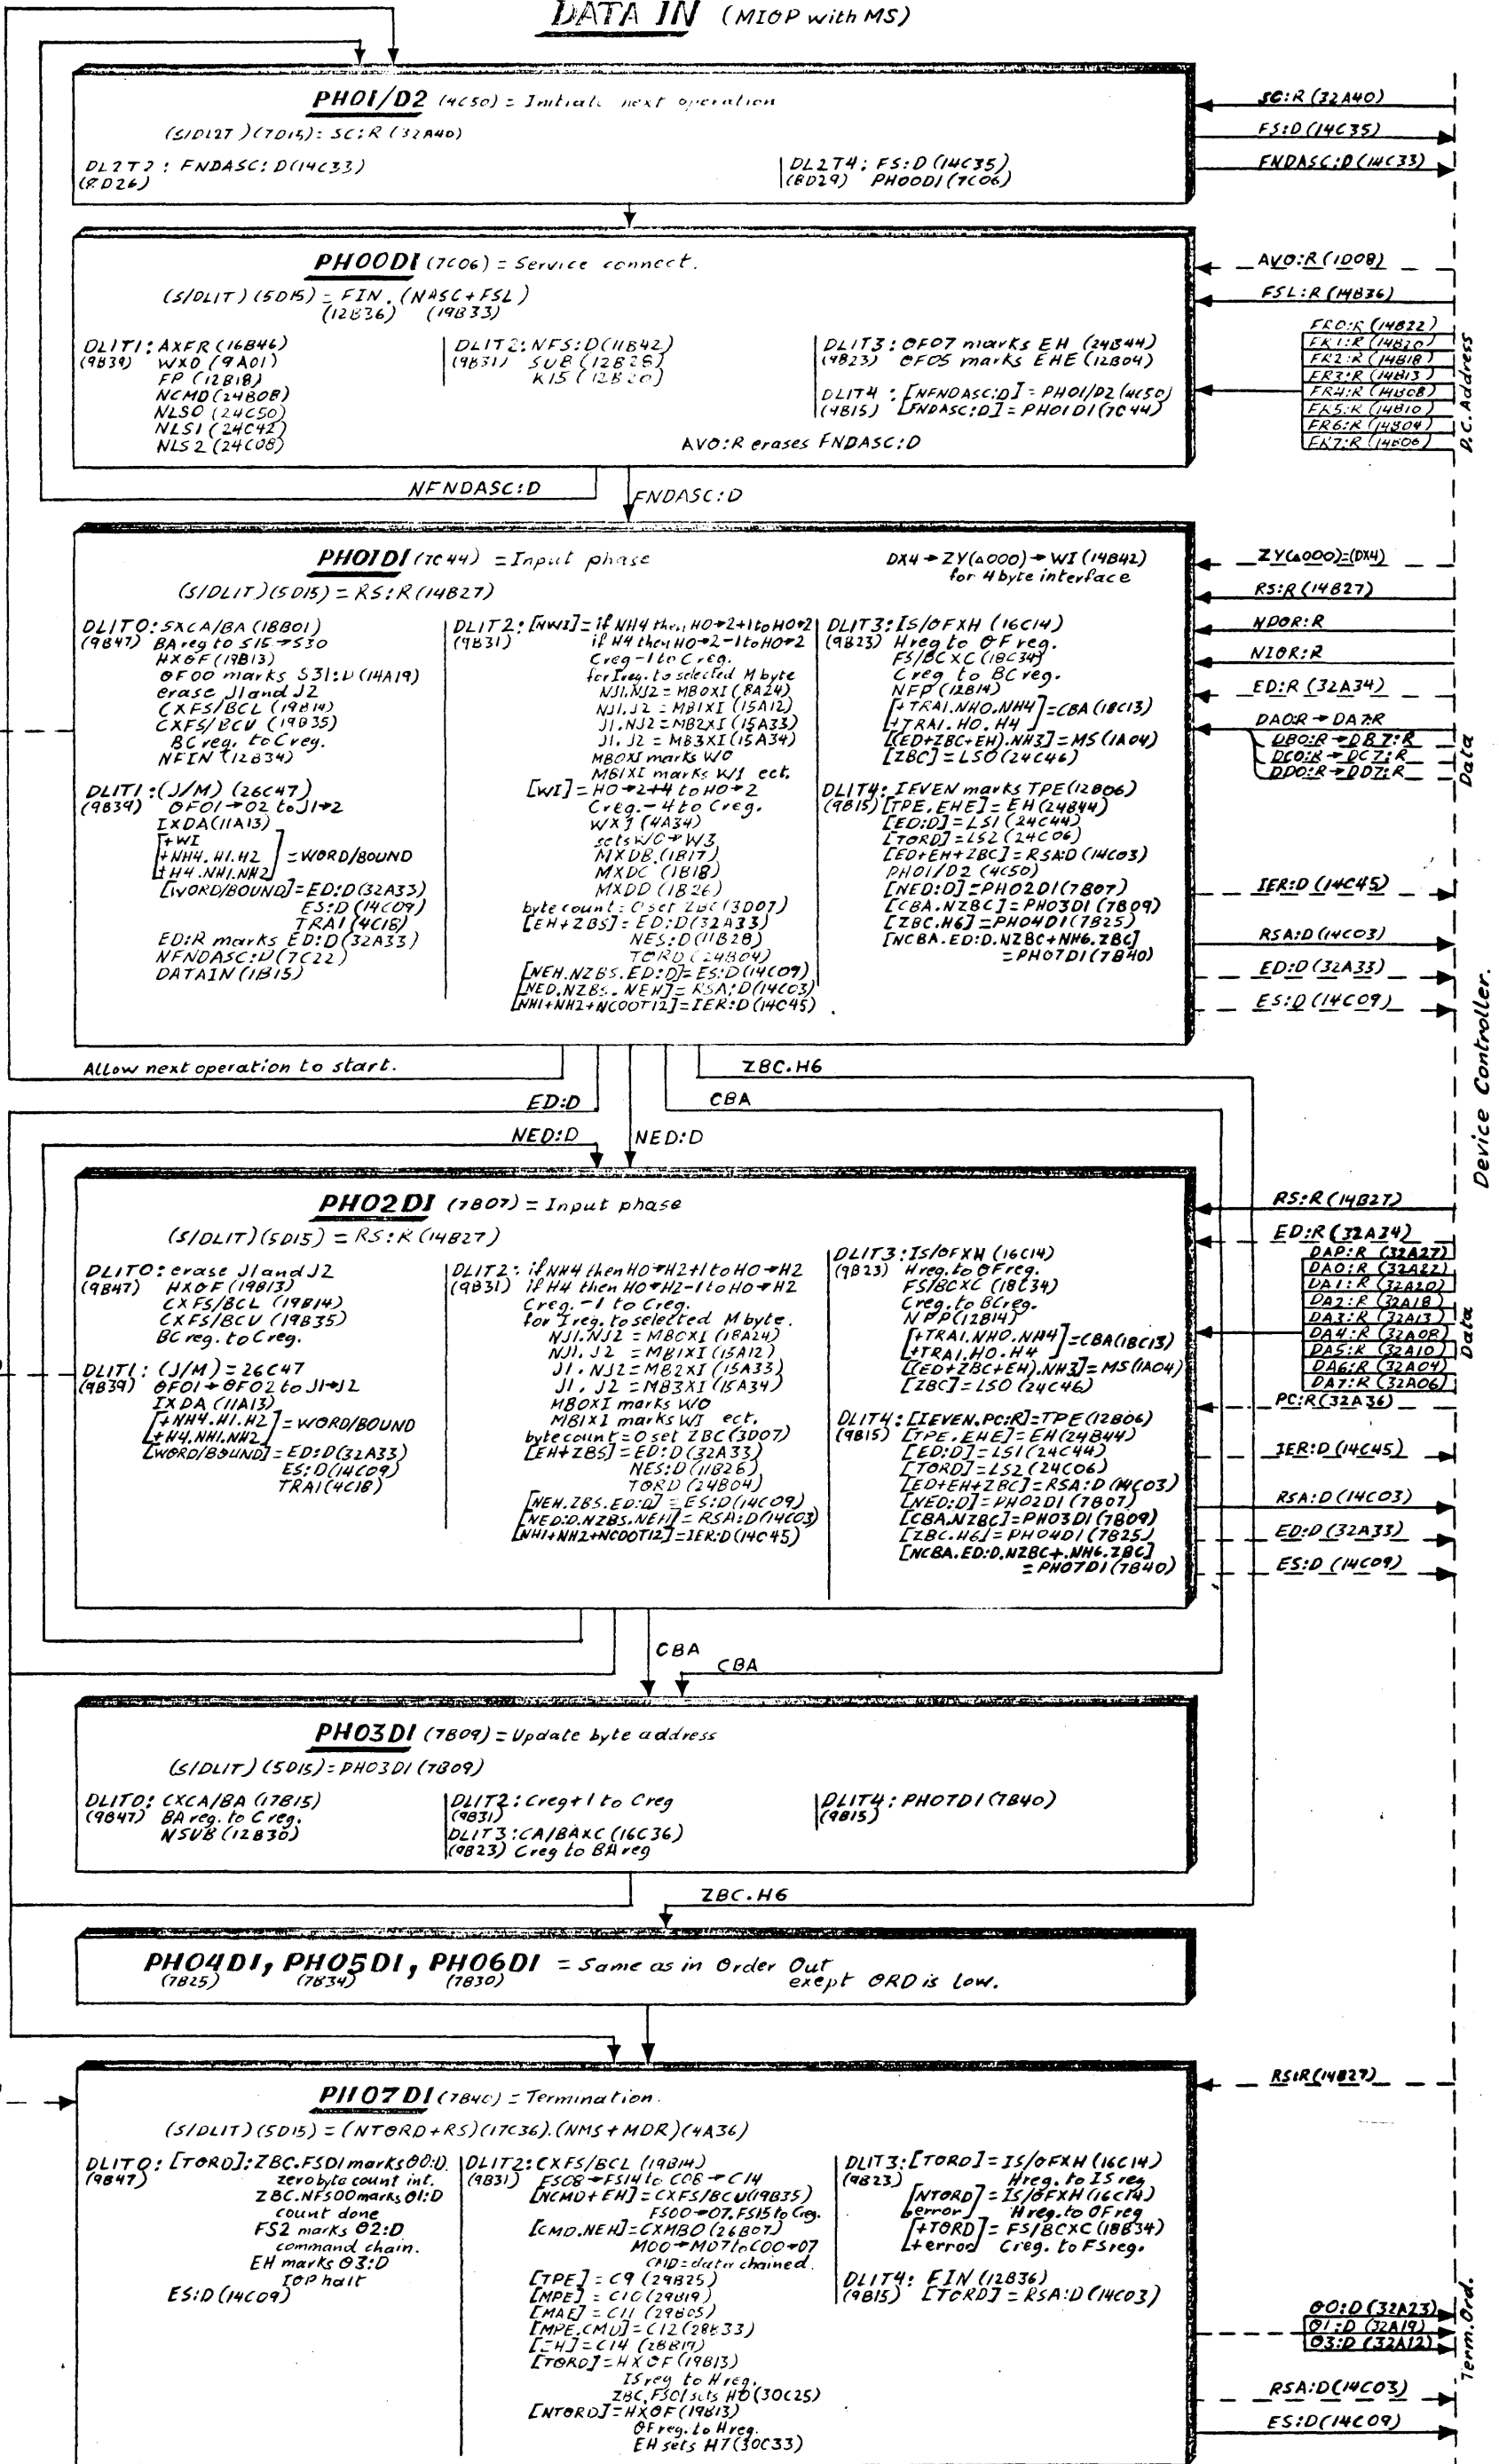 DATA IN (MIOP with MS)
PH01/D2 (4C50) = Initiate next operation
(S/DL2T)(7D15): SC:R (32A40)
DL2T2: FNDASC:D(14C33)
(8D26)
DL2T4: FS:D(14C35)
(8D29) PH00DI(7C06)
SC:R (32A40)
FS:D(14C35)
FNDASC:D(14C33)
PH00DI (7C06) = Service connect.
(S/DLIT)(5D15) = FIN.(NASC+FSL)
(12B36) (19B33)
DLIT1: AXFR(16B46)
(9B39) WX0 (9A01)
FP (12B18)
NCMD(24B08)
NLS0(24C50)
NLS1(24C42)
NLS2(24C08)
DLIT2: NFS:D(11B42)
(9B31) SUB(12B28)
K15(12B20)
DLIT3: OF07 marks EH (24B44)
(9B23) OF05 marks EHE(12B04)
DLIT4: [NFNDASC:D] = PH01/D2(4C50)
(9B15) [FNDASC:D] = PH01DI(7C44)
AVO:R erases FNDASC:D
AVO:R(1D08)
FSL:R(14B36)
FR0:R(14B22)
FR1:R(14B20)
FR2:R(14B18)
FR3:R(14B13)
FR4:R(14B08)
FR5:R(14B10)
FR6:R(14B04)
FR7:R(14B06)
D.C. Address
NFNDASC:D
FNDASC:D
PH01DI(7C44) = Input phase
DX4→ZY(Δ000)→WI(14B42)
for 4 byte interface
(S/DLIT)(5D15) = RS:R(14B27)
DLIT0: SXCA/BA (18B01)
(9B47) BAreg to S15→S30
HXOF(19B13)
OF00 marks S31:D(14A19)
erase J1 and J2
CXFS/BCL (19B14)
CXFS/BCU (19B35)
BC reg. to Creg.
NFIN (12B34)
DLIT1: (J/M) (26C47)
(9B39) OF01→02 to J1→2
IXDA(11A13)
[+WI
+NH4.H1.H2 ] = WORD/BOUND
+H4.NH1.NH2
[WORD/BOUND] = ED:D(32A33)
ES:D(14C09)
TRA1(4C18)
ED:R marks ED:D(32A33)
NFNDASC:D(7C22)
DATAIN(1B15)
DLIT2: [NWI] = if NH4 then H0→2+1 to H0→2
(9B31) if H4 then H0→2-1 to H0→2
Creg-1 to Creg.
for Ireg. to selected M byte
NJ1.NJ2 = MB0XI(18A24)
NJ1.J2 = MB1XI(15A12)
J1.NJ2 = MB2XI(15A33)
J1.J2 = MB3XI(15A34)
MB0XI marks W0
MB1XI marks W1 ect.
[WI] = H0→2+4 to H0→2
Creg.-4 to Creg.
WX3 (4A34)
sets W0→W3
MXDB (1B17)
MXDC (1B18)
MXDD (1B26)
byte count = 0 set ZBC(3D07)
[EH+ZBS] = ED:D(32A33)
NES:D(11B28)
TORD(24B04)
[NEH.NZBS.ED:D] = ES:D(14C09)
[NED.NZBS.NEH] = RSA:D(14C03)
[NH1+NH2+NC00T12] = IER:D(14C45)
DLIT3: IS/OFXH (16C14)
(9B23) Hreg to OF reg.
FS/BCXC(18C34)
Creg to BC reg.
NFP (12B14)
[+TRA1.NH0.NH4] = CBA(18C13)
+TRA1.H0.H4
[(ED+ZBC+EH).NH3] = MS(1A04)
[ZBC] = LS0(24C46)
DLIT4: IEVEN marks TPE(12B06)
(9B15) [TPE.EHE] = EH(24B44)
[ED:D] = LS1(24C44)
[TORD] = LS2(24C06)
[ED+EH+ZBC] = RSA:D(14C03)
PH01/D2 (4C50)
[NED:D] = PH02DI(7B07)
[CBA.NZBC] = PH03DI(7B09)
[ZBC.H6] = PH04DI(7B25)
[NCBA.ED:D.NZBC+NH6.ZBC]
= PH07DI(7B40)
ZY(Δ000)=(DX4)
RS:R(14B27)
NDOR:R
NIOR:R
ED:R (32A34)
DA0:R→DA7:R
DB0:R→DB7:R
DC0:R→DC7:R
DD0:R→DD7:R
Data
IER:D(14C45)
RSA:D(14C03)
ED:D(32A33)
ES:D(14C09)
Device Controller.
Allow next operation to start.
ZBC.H6
ED:D
CBA
NED:D
NED:D
PH02DI (7B07) = Input phase
(S/DLIT)(5D15) = RS:R(14B27)
DLIT0: erase J1 and J2
(9B47) HXOF(19B13)
CXFS/BCL (19B14)
CXFS/BCU (19B35)
BC reg. to Creg.
DLIT1: (J/M) = 26C47
(9B39) OF01→OF02 to J1→J2
IXDA(11A13)
[+NH4.H1.H2 ] = WORD/BOUND
+H4.NH1.NH2
[WORD/BOUND] = ED:D(32A33)
ES:D(14C09)
TRA1(4C18)
DLIT2: if NH4 then H0→H2+1 to H0→H2
(9B31) if H4 then H0→H2-1 to H0→H2
Creg.-1 to Creg.
for Ireg. to selected Mbyte.
NJ1.NJ2 = MB0XI(18A24)
NJ1.J2 = MB1XI(15A12)
J1.NJ2 = MB2XI(15A33)
J1.J2 = MB3XI(15A34)
MB0XI marks W0
MB1XI marks W1 ect.
byte count = 0 set ZBC(3D07)
[EH+ZBS] = ED:D(32A33)
NES:D(11B26)
TORD(24B04)
[NEH.ZBS.ED:D] = ES:D(14C09)
[NED:D.NZBS.NEH] = RSA:D(14C03)
[NH1+NH2+NC00T12] = IER:D(14C45)
DLIT3: IS/OFXH (16C14)
(9B23) Hreg. to OF reg.
FS/BCXC(18C34)
Creg. to BCreg.
NFP(12B14)
[+TRA1.NH0.NH4] = CBA(18C13)
+TRA1.H0.H4
[(ED+ZBC+EH).NH3] = MS(1A04)
[ZBC] = LS0(24C46)
DLIT4: [IEVEN.PC:R] = TPE(12B06)
(9B15) [TPE.EHE] = EH(24B44)
[ED:D] = LS1(24C44)
[TORD] = LS2(24C06)
[ED+EH+ZBC] = RSA:D(14C03)
[NED:D] = PH02DI(7B07)
[CBA.NZBC] = PH03DI(7B09)
[ZBC.H6] = PH04DI(7B25)
[NCBA.ED:D.NZBC+.NH6.ZBC]
= PH07DI(7B40)
RS:R(14B27)
ED:R(32A34)
DAP:R (32A27)
DA0:R (32A22)
DA1:R (32A20)
DA2:R (32A18)
DA3:R (32A13)
DA4:R (32A08)
DA5:R (32A10)
DA6:R (32A04)
DA7:R (32A06)
Data
PC:R(32A36)
IER:D(14C45)
RSA:D(14C03)
ED:D(32A33)
ES:D(14C09)
CBA
CBA
PH03DI (7B09) = Update byte address
(S/DLIT)(5D15) = PH03DI(7B09)
DLIT0: CXCA/BA (17B15)
(9B47) BA reg. to Creg.
NSUB(12B30)
DLIT2: Creg+1 to Creg
(9B31)
DLIT3: CA/BAXC(16C36)
(9B23) Creg to BAreg
DLIT4: PH07DI(7B40)
(9B15)
ZBC.H6
PH04DI, PH05DI, PH06DI = Same as in Order Out
(7B25) (7B34) (7B30) exept ORD is low.
PH07DI(7B40) = Termination.
(S/DLIT)(5D15) = (NTORD+RS)(17C36).(NMS+MDR)(4A36)
DLIT0: [TORD]: ZBC.FSD1 marks O0:D.
(9B47) zero byte count int.
ZBC.NFS00 marks O1:D
count done
FS2 marks O2:D
command chain.
EH marks O3:D
IOP halt
ES:D(14C09)
DLIT2: CXFS/BCL (19B14)
(9B31) FS08→FS14 to C08→C14
[NCMD+EH] = CXFS/BCU(19B35)
FS00→07.FS15 to Creg.
[CMD.NEH] = CXMB0(26B07)
M00→M07 to C00→07
CMD = data chained.
[TPE] = C9(29B25)
[MPE] = C10(29B19)
[MAE] = C11(29B05)
[MPE.CMD] = C12(28B33)
[EH] = C14(28B19)
[TORD] = HXOF(19B13)
ISreg to Hreg.
ZBC.FS01 sets H0(30C25)
[NTORD] = HXOF(19B13)
OFreg. to Hreg.
EH sets H7(30C33)
DLIT3: [TORD] = IS/OFXH(16C14)
(9B23) Hreg. to IS reg
[NTORD] = IS/OFXH(16C14)
error Hreg. to OFreg
[+TORD] = FS/BCXC(18B34)
+error Creg. to FSreg.
DLIT4: FIN(12B36)
(9B15) [TORD] = RSA:D(14C03)
RS:R(14B27)
O0:D(32A23)
O1:D(32A19)
O3:D(32A12)
Term.Ord.
RSA:D(14C03)
ES:D(14C09)